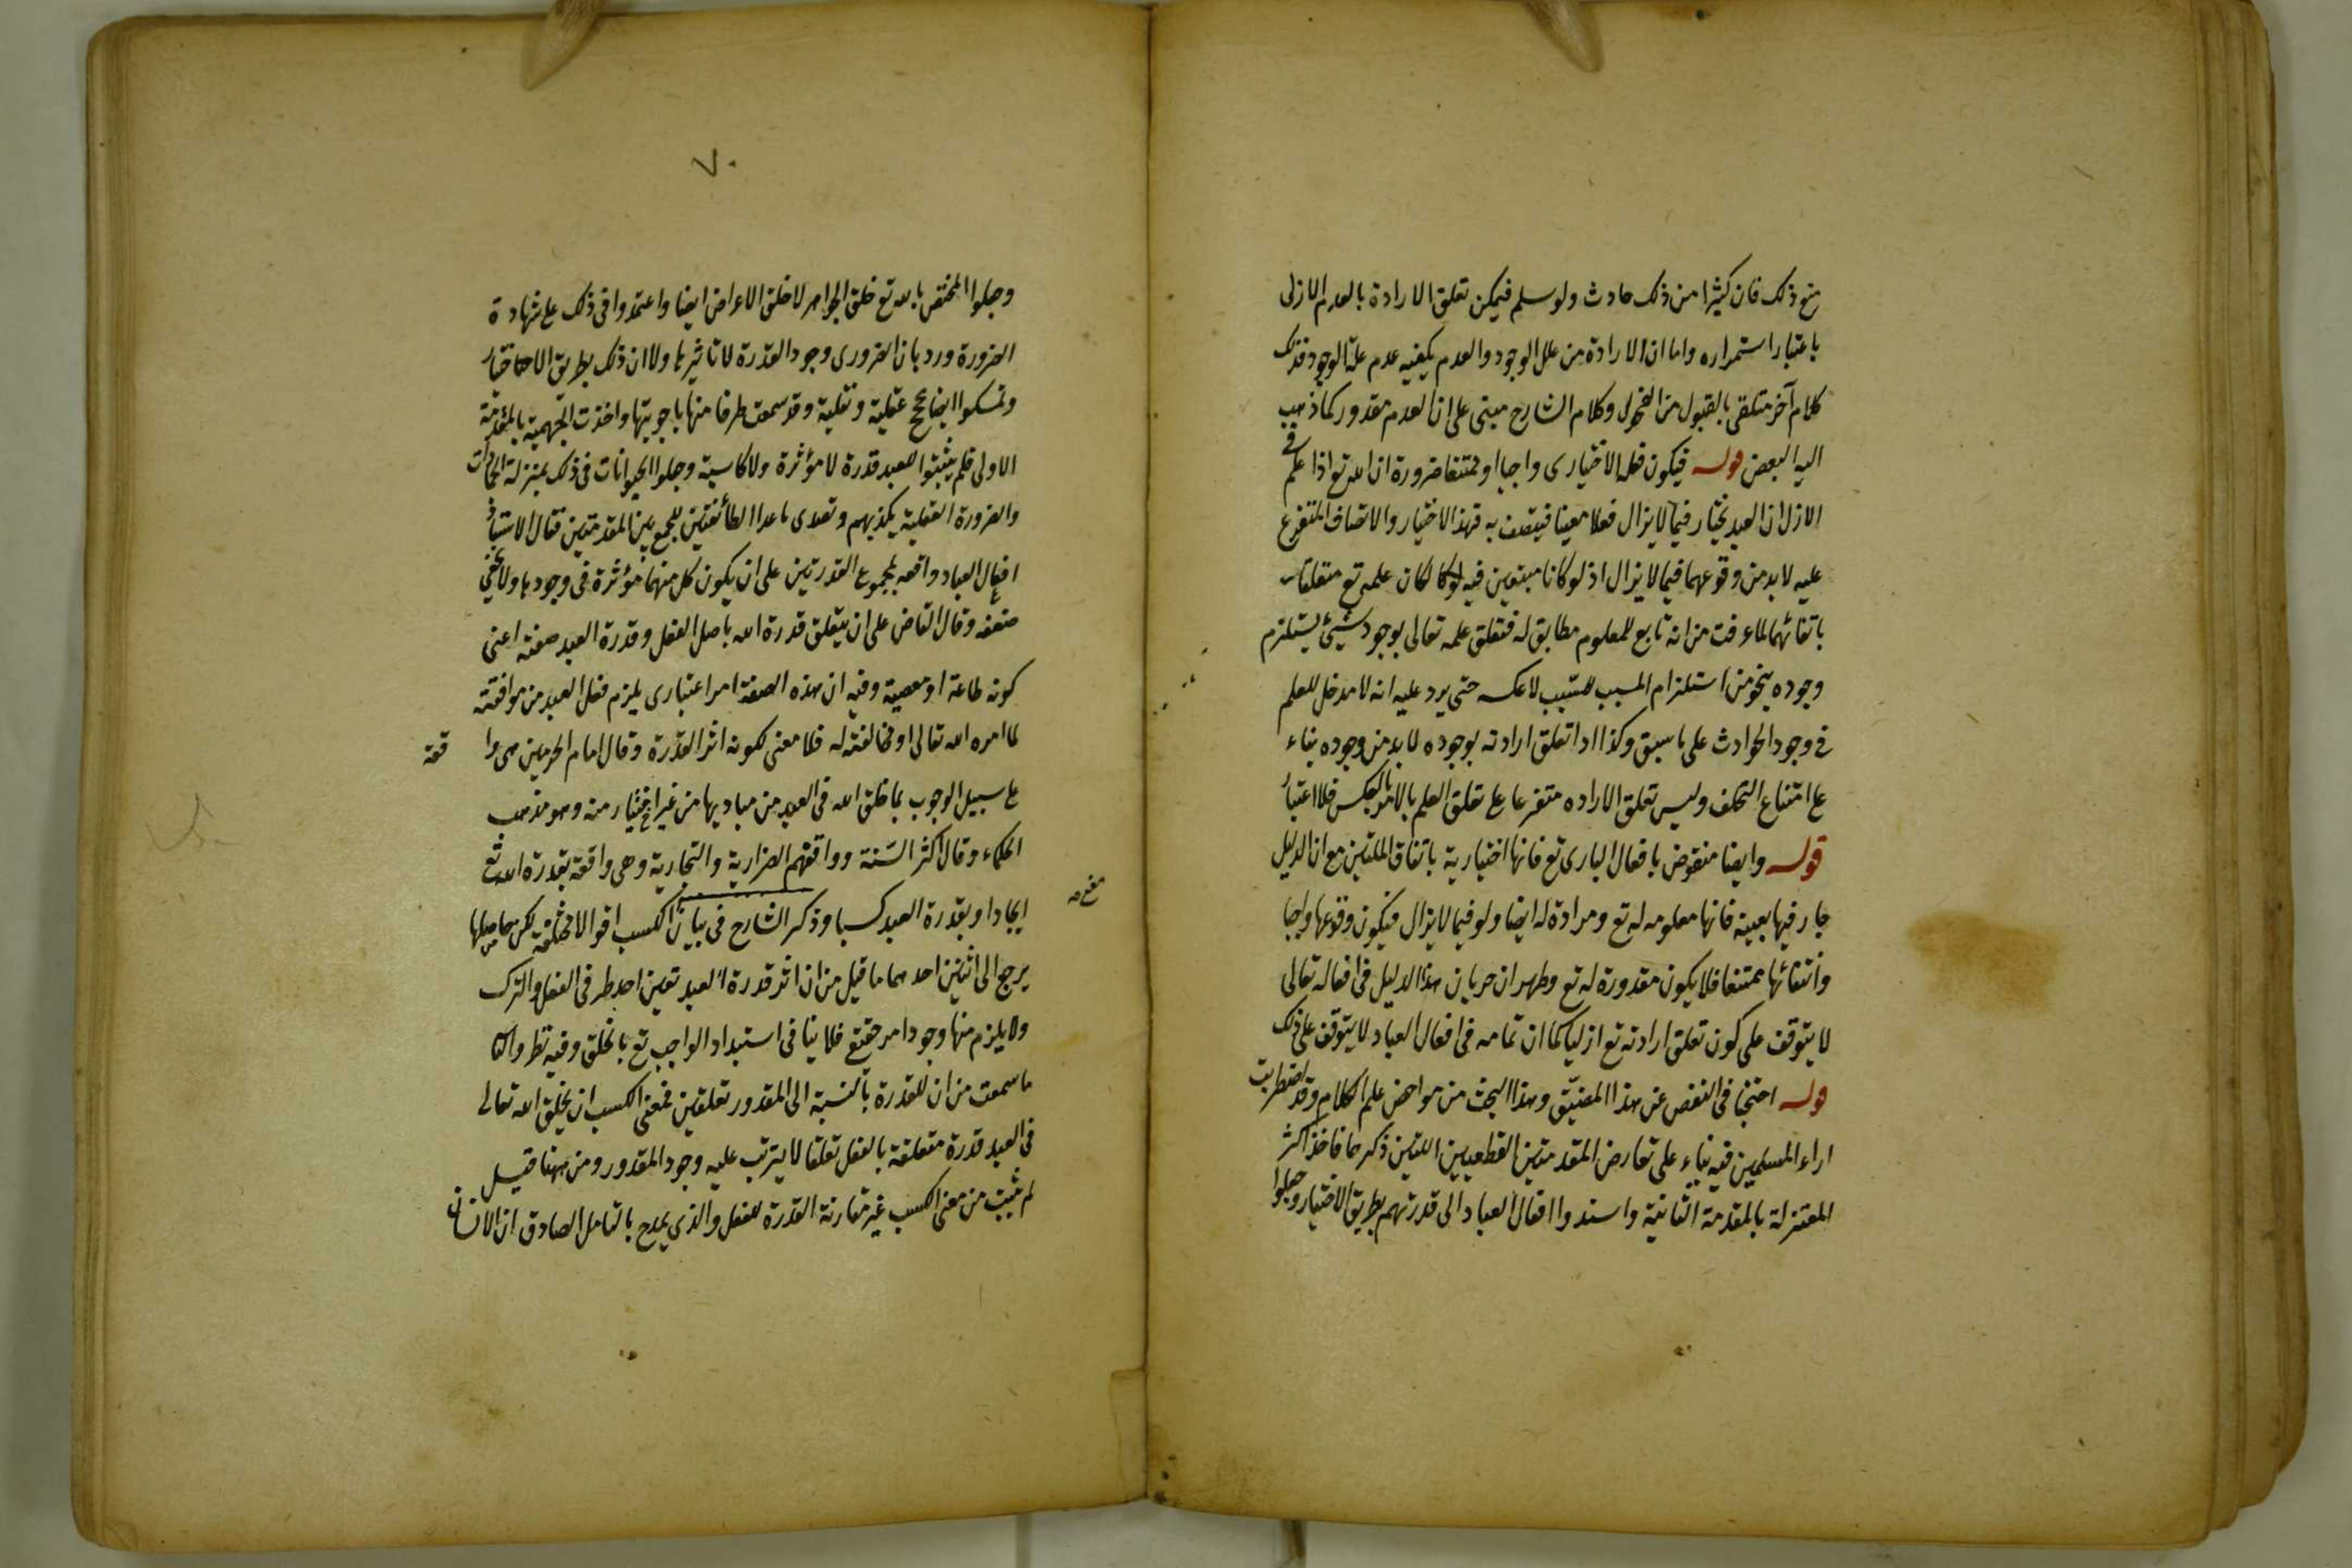 منع ذلك فان كثيرا من ذلك حادث ولو سلم فيمكن تعلق الارادة بالعدم الازلى
باعتبار استمراره واما ان الارادة من علل الوجود والعدم يكفيه عدم علة الوجود فذلك
كلام آخر متلقى بالقبول من الفحول وكلام الشارح مبنى على ان العدم مقدور كما ذهب
اليه البعض قوله فيكون فعله الاختيارى واجبا او ممتنعا ضرورة ان الله تع اذا علم فى
الازل ان العبد يختار فيما لا يزال فعلا معينا فيتصف به فهذا الاختيار والاتصاف المتفرع
عليه لا بد من وقوعهما فيما لا يزال اذ لو كانا منتفيين فيه لكان علمه تع متعلقا
بانتفائهما لما عرفت من انه تابع للمعلوم مطابق له فتعلق علمه تعالى بوجود شيئ يستلزم
وجوده بنحو من استلزام المسبب للسبب لا عكسه حتى يرد عليه انه لا مدخل للعلم
فى وجود الحوادث على ما سبق وكذا اذا تعلق ارادته بوجوده لا بد من وجوده بناء
على امتناع التخلف وليس تعلق الاراده متفرعا على تعلق العلم بل الامر بالعكس فلا اعتبار
قوله وايضا منقوض بافعال البارى تع فانها اختيارية باتفاق المليين مع ان الدليل
جار فيها بعينه فانها معلومه له تع ومرادة له ايضا ولو فيما لا يزال فيكون وقوعها واجبا
وانتفائها ممتنعا فلا يكون مقدورة له تع وظهر ان جريان هذا الدليل فى افعاله تعالى
لا يتوقف على كون تعلق ارادته تع ازليا كما ان تمامه فى افعال العباد لا يتوقف على ذلك
قوله احتجنا فى التفصى عن هذا المضيق وهذا البحث من مواحض علم الكلام وقد اضطربت
اراء المسلمين فيه بناء على تعارض المقدمتين القطعيتين اللتين ذكرهما فاخذ اكثر
المعتزلة بالمقدمة الثانية واسندوا افعال العباد الى قدرتهم بطريق الاختيار وجعلوا
٧٠
وجعلوا المختص بالله تع خلق الجواهر لا خلق الاعراض ايضا واعتمدوا فى ذلك على شهادة
الضرورة ورد بان الضرورى وجود القدرة لا تاثيرها ولا ان ذلك بطريق الاختيار
وتمسكوا ايضا بحجج عقلية ونقلية وقد سمعت طرفا منها باجوبتها واخذت الجهمية بالمقدمة
الاولى فلم يثبتوا للعبد قدرة لا مؤثرة ولا كاسبة وجعلوا الحيوانات فى ذلك بمنزلة الجمادات
والضرورة العقلية يكذبهم وتصدى ما عدا الطائفتين للجمع بين المقدمتين فقال الاستاذ
افعال العباد واقعة بمجموع القدرتين على ان يكون كل منهما مؤثرة فى وجودها ولا يخفى
ضعفه وقال القاضى على ان يتعلق قدرة الله باصل الفعل وقدرة العبد صفته اعنى
كونه طاعة او معصية وفيه ان هذه الصفة امر اعتبارى يلزم فعل العبد من موافقته
لما امره الله تعالى او مخالفته له فلا معنى لكونه اثر القدرة وقال امام الحرمين هى وا
قعة
على سبيل الوجوب بما خلق الله فى العبد من مباديها من غير اختيار منه وهو مذهب
الحكماء وقال اكثر السنة ووافقهم الضرارية والنجارية وهى واقعة بقدرة الله تع
ايجادا وبقدرة العبد كسبا وذكر الشارح فى بيان الكسب اقوالا مختلفة لكن حاصلها
يرجع الى اثنين احدهما ما قيل من ان اثر قدرة العبد تعين احد طرفى الفعل والترك
ولا يلزم منها وجود امر حقيقى فلا ينافى استبداد الواجب تع بالخلق وفيه نظر
ما سمعت من ان للقدرة بالنسبة الى المقدور تعلقين فمعنى الكسب ان يخلق الله تعالى
فى العبد قدرة متعلقة بالفعل تعلقا لا يترتب عليه وجود المقدور ومن ههنا قيل
لم يثبت من معنى الكسب غير مقارنة القدرة للفعل والذى يلوح بالتامل الصادق ان الانسان